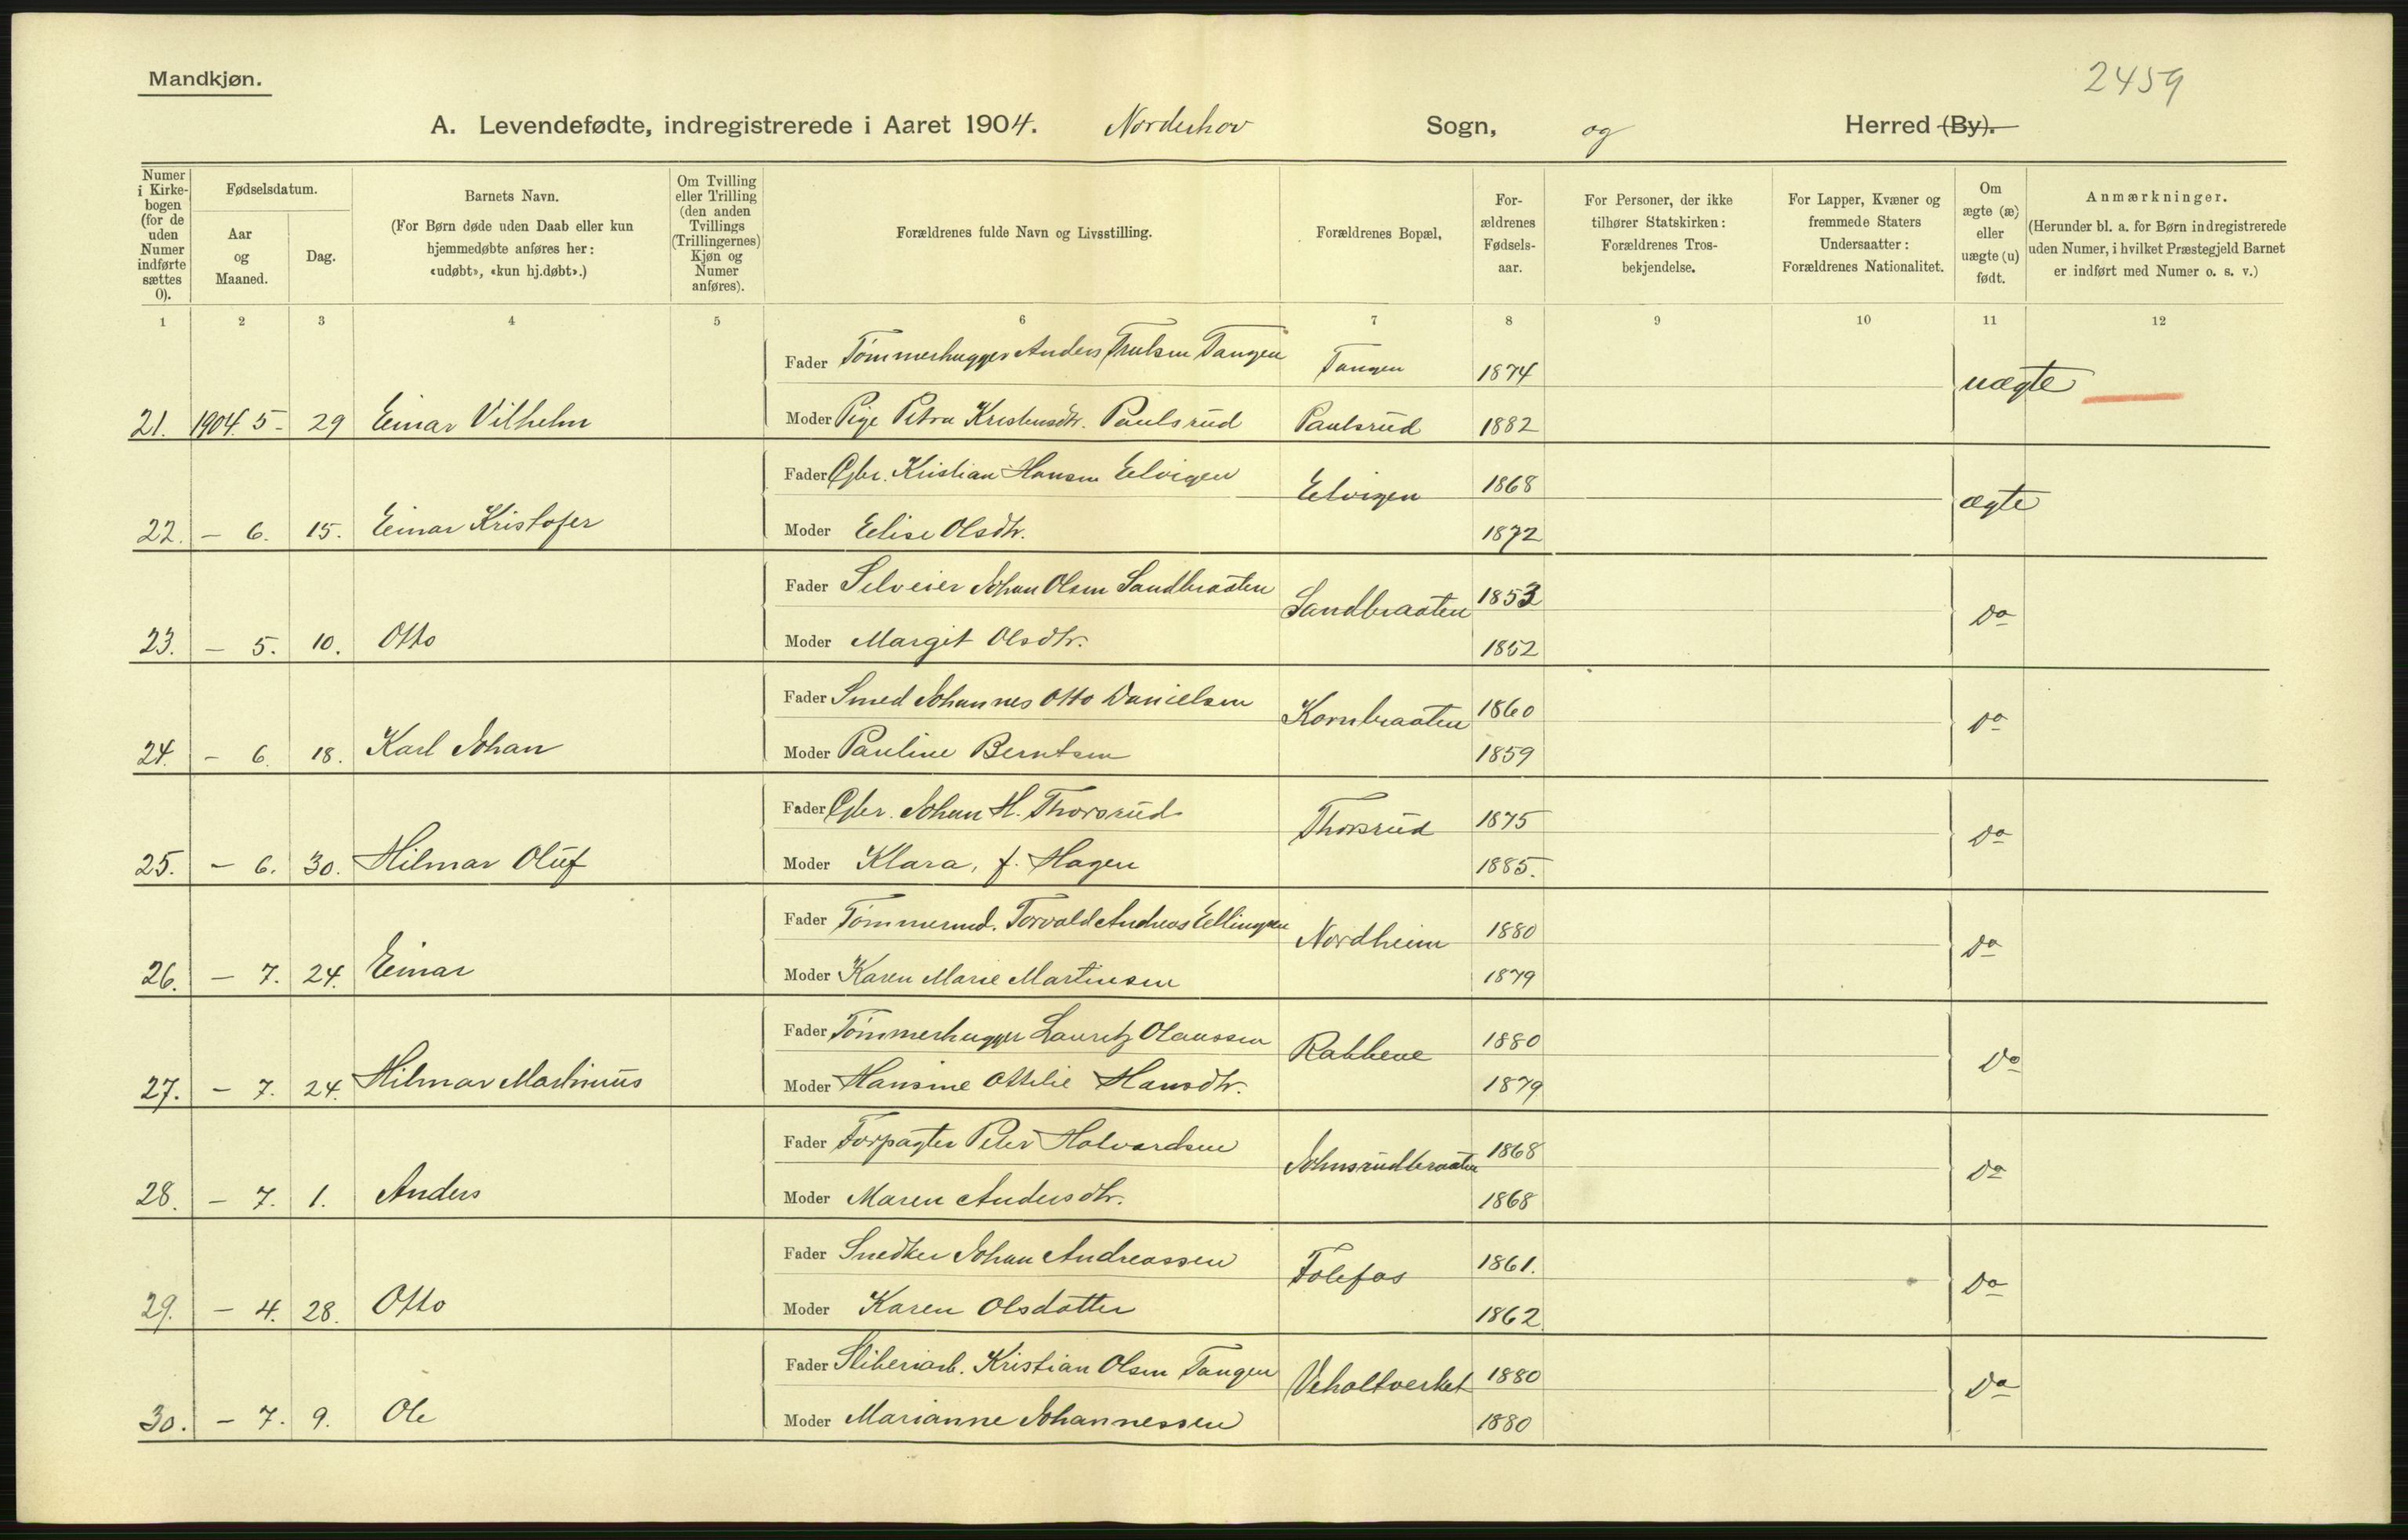 2459
Mandkjøn.
A. Levendefødte, indregistrerede i Aaret 1904. Norderhov Sogn, og Herred (By).
Numer i Kirkebogen (for de uden Numer indførte sættes 0).
Fødselsdatum.
Aar og Maaned.
Dag.
Barnets Navn.
(For Børn døde uden Daab eller kun hjemmedøbte anføres her: «udøbt», «kun hj.døbt».)
Om Tvilling eller Trilling (den anden Tvillings (Trillingernes) Kjøn og Numer anføres).
Forældrenes fulde Navn og Livsstilling.
Forældrenes Bopæl,
Forældrenes Fødselsaar.
For Personer, der ikke tilhører Statskirken: Forældrenes Trosbekjendelse.
For Lapper, Kvæner og fremmede Staters Undersaatter: Forældrenes Nationalitet.
Om ægte (æ) eller uægte (u) født.
Anmærkninger.
(Herunder bl. a. for Børn indregistrerede uden Numer, i hvilket Præstegjeld Barnet er indført med Numer o. s. v.)
1 2 3 4 5 6 7 8 9 10 11 12
Fader Tömmerhugger Anders Trulsen Tangen Tangen 1874 uægte
21. 1904. 5 - 29 Einar Vilhelm Moder Pige Petra Kristensdtr. Paulsrud Paulsrud 1882
Fader Gbr. Kristian Hansen Elvigen Elvigen 1868 ægte
22. - 6. 15. Einar Kristofer Moder Elise Olsdtr. 1872
Fader Selveier Johan Olsen Sandbraaten Sandbraaten 1853 Do
23. - 5. 10. Otto Moder Margit Olsdtr. 1852
Fader Smed Johannes Otto Danielsen Kornbraaten 1860 Do
24. - 6. 18. Karl Johan Moder Pauline Berntsen 1859
Fader Gbr. Johan H. Thorsrud Thorsrud 1875 Do
25. - 6. 30. Hilmar Oluf Moder Klara, f. Hagen 1885.
Fader Tömmermd. Torvald Andreas Ellingsen Nordheim 1880 Do
26. - 7. 24. Einar Moder Karen Marie Martinsen 1879
Fader Tömmerhugger Lauritz Olaussen Rakkene 1880 Do
27. - 7. 24. Hilmar Martinius Moder Hansine Otthilie Hansdtr. 1879
Fader Forpagter Peter Halvardsen Johnsrudbraaten 1868 Do
28. - 7. 1. Anders Moder Maren Andersdtr. 1868
Fader Snedker Johan Andreassen Folefos 1861. Do
29. - 4. 28. Otto Moder Karen Olsdatter 1862.
Fader Sliberiarb. Kristian Olsen Tangen Veholtverket 1880 Do
30. - 7. 9. Ole Moder Marianne Johannessen 1880